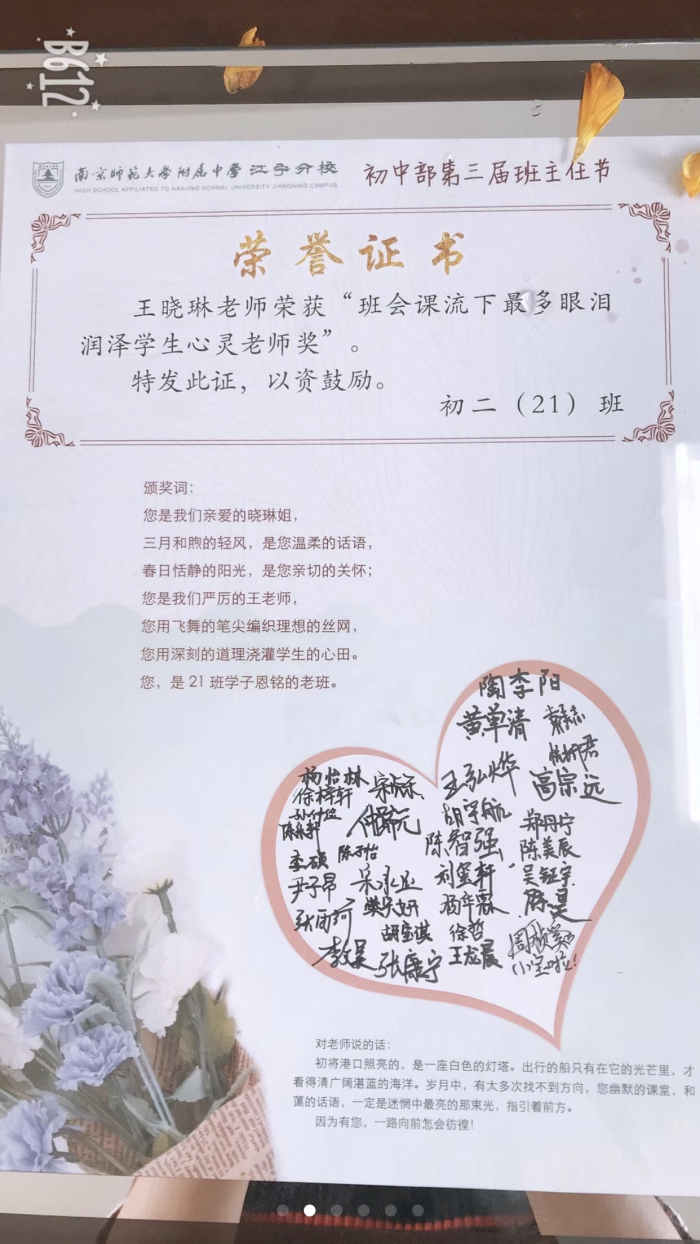 B612
南京师范大学附属中学 江宁分校
HIGH SCHOOL AFFILIATED TO NANJING NORMAL UNIVERSITY JIANGNING CAMPUS
初中部第三届班主任节
荣誉证书
王晓琳老师荣获“班会课流下最多眼泪
润泽学生心灵老师奖”。
特发此证，以资鼓励。
初二（21）班
颁奖词：
您是我们亲爱的晓琳姐，
三月和煦的轻风，是您温柔的话语，
春日恬静的阳光，是您亲切的关怀；
您是我们严厉的王老师，
您用飞舞的笔尖编织理想的丝网，
您用深刻的道理浇灌学生的心田。
您，是21班学子恩铭的老班。
陶李阳
黄单清
杨怡林
徐梓轩
王弘烨
高宗远
胡宇航
陈智强
郑丹宁
陈美辰
李硕
陈子怡
尹子昂
刘玺轩
吴钲宇
胡宝淇
徐哲
张康宁
王龙晨
小宝啦！
对老师说的话：
初将港口照亮的，是一座白色的灯塔。出行的船只有在它的光芒里，才
看得清广阔湛蓝的海洋。岁月中，有太多次找不到方向，您幽默的课堂，和
蔼的话语，一定是迷惘中最亮的那束光，指引着前方。
因为有您，一路向前怎会彷徨！